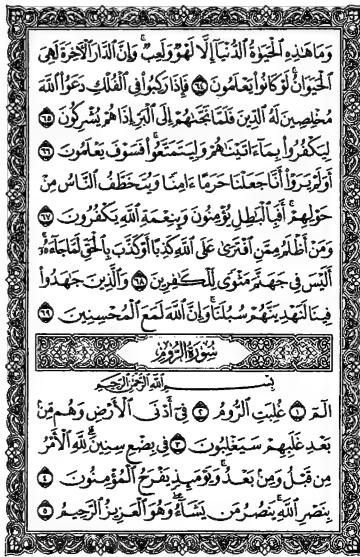 وَمَا هَٰذِهِ الْحَيَوٰةُ الدُّنْيَآ إِلَّا لَهْوٌ وَلَعِبٌ ۚ وَإِنَّ الدَّارَ الْـَٔاخِرَةَ لَهِىَ
الْحَيَوَانُ ۚ لَوْ كَانُوا۟ يَعْلَمُونَ ٦٤ فَإِذَا رَكِبُوا۟ فِى الْفُلْكِ دَعَوُا۟ اللَّهَ
مُخْلِصِينَ لَهُ الدِّينَ فَلَمَّا نَجَّىٰهُمْ إِلَى الْبَرِّ إِذَا هُمْ يُشْرِكُونَ ٦٥
لِيَكْفُرُوا۟ بِمَآ ءَاتَيْنَٰهُمْ وَلِيَتَمَتَّعُوا۟ ۖ فَسَوْفَ يَعْلَمُونَ ٦٦
أَوَلَمْ يَرَوْا۟ أَنَّا جَعَلْنَا حَرَمًا ءَامِنًا وَيُتَخَطَّفُ النَّاسُ مِنْ
حَوْلِهِمْ ۚ أَفَبِالْبَٰطِلِ يُؤْمِنُونَ وَبِنِعْمَةِ اللَّهِ يَكْفُرُونَ ٦٧
وَمَنْ أَظْلَمُ مِمَّنِ افْتَرَىٰ عَلَى اللَّهِ كَذِبًا أَوْ كَذَّبَ بِالْحَقِّ لَمَّا جَآءَهُۥٓ ۚ
أَلَيْسَ فِى جَهَنَّمَ مَثْوًى لِّلْكَٰفِرِينَ ٦٨ وَالَّذِينَ جَٰهَدُوا۟
فِينَا لَنَهْدِيَنَّهُمْ سُبُلَنَا ۚ وَإِنَّ اللَّهَ لَمَعَ الْمُحْسِنِينَ ٦٩
سُورَةُ الرُّومِ
بِسْمِ اللَّهِ الرَّحْمَٰنِ الرَّحِيمِ
الٓمٓ ١ غُلِبَتِ الرُّومُ ٢ فِىٓ أَدْنَى الْأَرْضِ وَهُم مِّنۢ
بَعْدِ غَلَبِهِمْ سَيَغْلِبُونَ ٣ فِى بِضْعِ سِنِينَ ۗ لِلَّهِ الْأَمْرُ
مِن قَبْلُ وَمِنۢ بَعْدُ ۚ وَيَوْمَئِذٍ يَفْرَحُ الْمُؤْمِنُونَ ٤
بِنَصْرِ اللَّهِ ۚ يَنصُرُ مَن يَشَآءُ ۖ وَهُوَ الْعَزِيزُ الرَّحِيمُ ٥